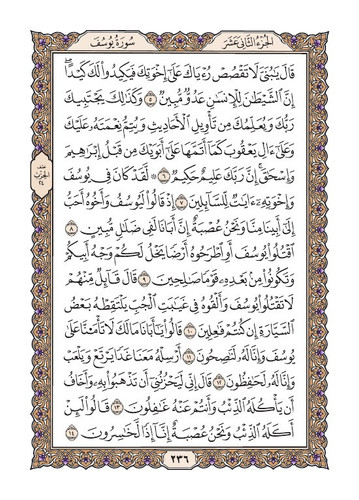 الجزء الثاني عشر
سورة يوسف
قَالَ يَٰبُنَىَّ لَا تَقۡصُصۡ رُءۡيَاكَ عَلَىٰٓ إِخۡوَتِكَ فَيَكِيدُواْ لَكَ كَيۡدًاۖ
إِنَّ ٱلشَّيۡطَٰنَ لِلۡإِنسَٰنِ عَدُوٌّ مُّبِينٌ ٥ وَكَذَٰلِكَ يَجۡتَبِيكَ
رَبُّكَ وَيُعَلِّمُكَ مِن تَأۡوِيلِ ٱلۡأَحَادِيثِ وَيُتِمُّ نِعۡمَتَهُۥ عَلَيۡكَ
وَعَلَىٰٓ ءَالِ يَعۡقُوبَ كَمَآ أَتَمَّهَا عَلَىٰٓ أَبَوَيۡكَ مِن قَبۡلُ إِبۡرَٰهِيمَ
وَإِسۡحَٰقَۚ إِنَّ رَبَّكَ عَلِيمٌ حَكِيمٌ ٦ ۞ لَّقَدۡ كَانَ فِى يُوسُفَ
وَإِخۡوَتِهِۦٓ ءَايَٰتٌ لِّلسَّآئِلِينَ ٧ إِذۡ قَالُواْ لَيُوسُفُ وَأَخُوهُ أَحَبُّ
إِلَىٰٓ أَبِينَا مِنَّا وَنَحۡنُ عُصۡبَةٌ إِنَّ أَبَانَا لَفِى ضَلَٰلٍ مُّبِينٍ ٨
ٱقۡتُلُواْ يُوسُفَ أَوِ ٱطۡرَحُوهُ أَرۡضًا يَخۡلُ لَكُمۡ وَجۡهُ أَبِيكُمۡ
وَتَكُونُواْ مِنۢ بَعۡدِهِۦ قَوۡمًا صَٰلِحِينَ ٩ قَالَ قَآئِلٌ مِّنۡهُمۡ
لَا تَقۡتُلُواْ يُوسُفَ وَأَلۡقُوهُ فِى غَيَٰبَتِ ٱلۡجُبِّ يَلۡتَقِطۡهُ بَعۡضُ
ٱلسَّيَّارَةِ إِن كُنتُمۡ فَٰعِلِينَ ١٠ قَالُواْ يَٰٓأَبَانَا مَالَكَ لَا تَأۡمَ۫نَّا عَلَىٰ
يُوسُفَ وَإِنَّا لَهُۥ لَنَٰصِحُونَ ١١ أَرۡسِلۡهُ مَعَنَا غَدًا يَرۡتَعۡ وَيَلۡعَبۡ
وَإِنَّا لَهُۥ لَحَٰفِظُونَ ١٢ قَالَ إِنِّى لَيَحۡزُنُنِىٓ أَن تَذۡهَبُواْ بِهِۦ وَأَخَافُ
أَن يَأۡكُلَهُ ٱلذِّئۡبُ وَأَنتُمۡ عَنۡهُ غَٰفِلُونَ ١٣ قَالُواْ لَئِنۡ
أَكَلَهُ ٱلذِّئۡبُ وَنَحۡنُ عُصۡبَةٌ إِنَّآ إِذًا لَّخَٰسِرُونَ ١٤
نصف
الحزب
٢٤
٢٣٦